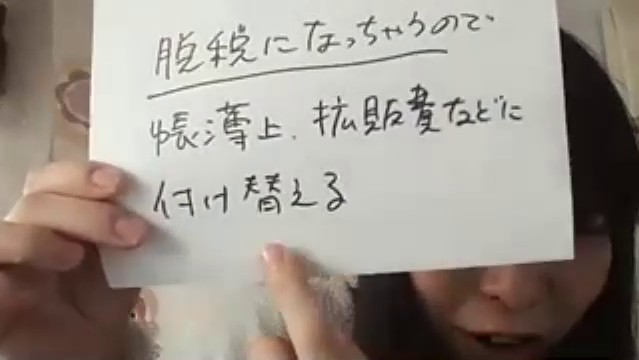 脱税になっちゃうので
帳簿上、拡販費などに
付け替える